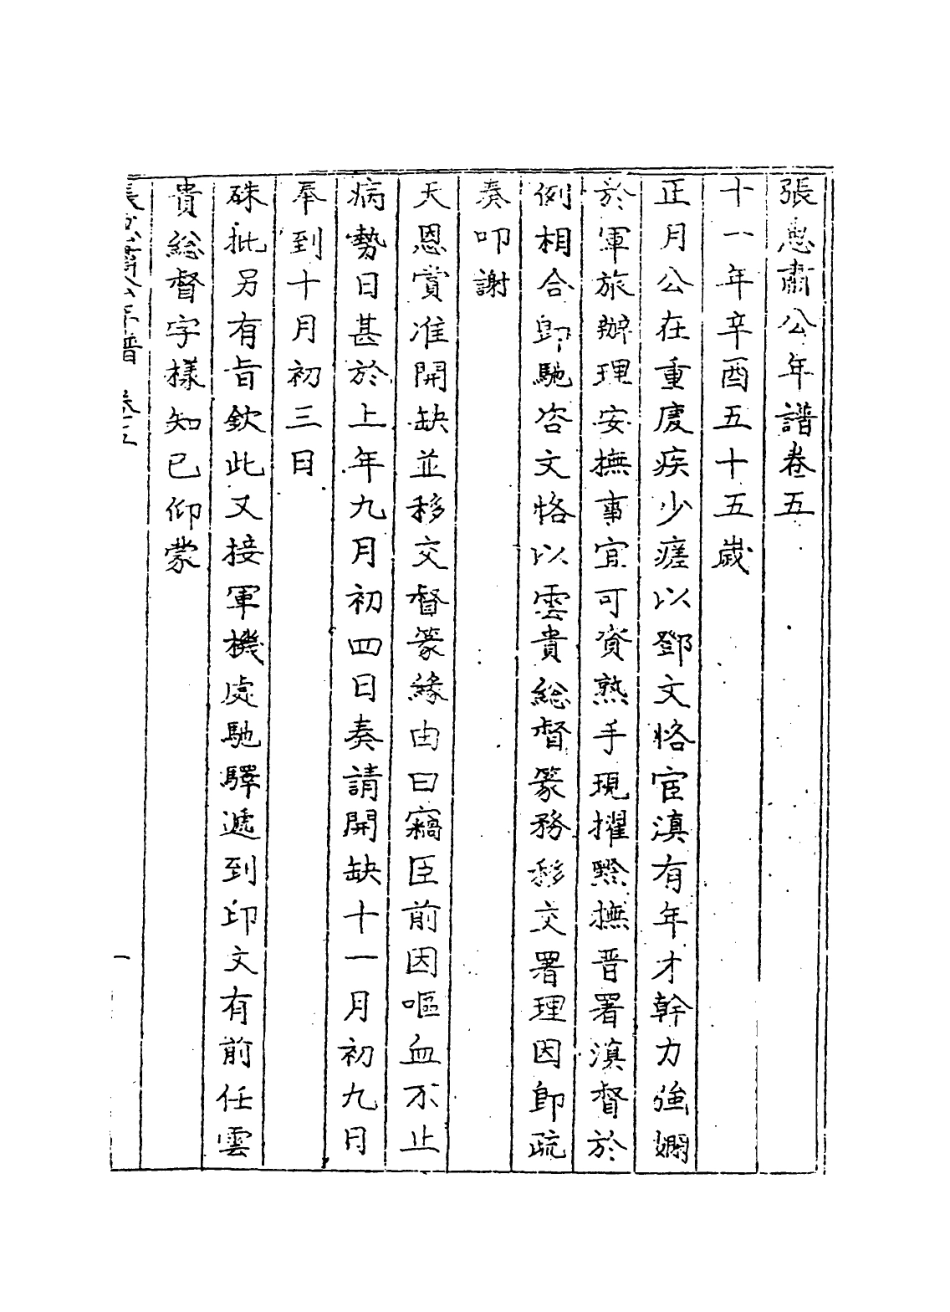 張惠肅公年譜卷五
十一年辛酉五十五歲
正月公在重慶疾少瘥以鄧文恪宦滇有年才幹力強嫻
於軍旅辦理安撫事宜可資熟手現擢黔撫晋署滇督於
例相合即馳咨文恪以雲貴總督篆務移交署理因即疏
奏叩謝
天恩賞准開缺並移交督篆緣由曰竊臣前因嘔血不止
病勢日甚於上年九月初四日奏請開缺十一月初九日
奉到十月初三日
硃批另有旨欽此又接軍機處馳驛遞到印文有前任雲
貴総督字樣知已仰蒙
張惠肅公年譜 卷五
一